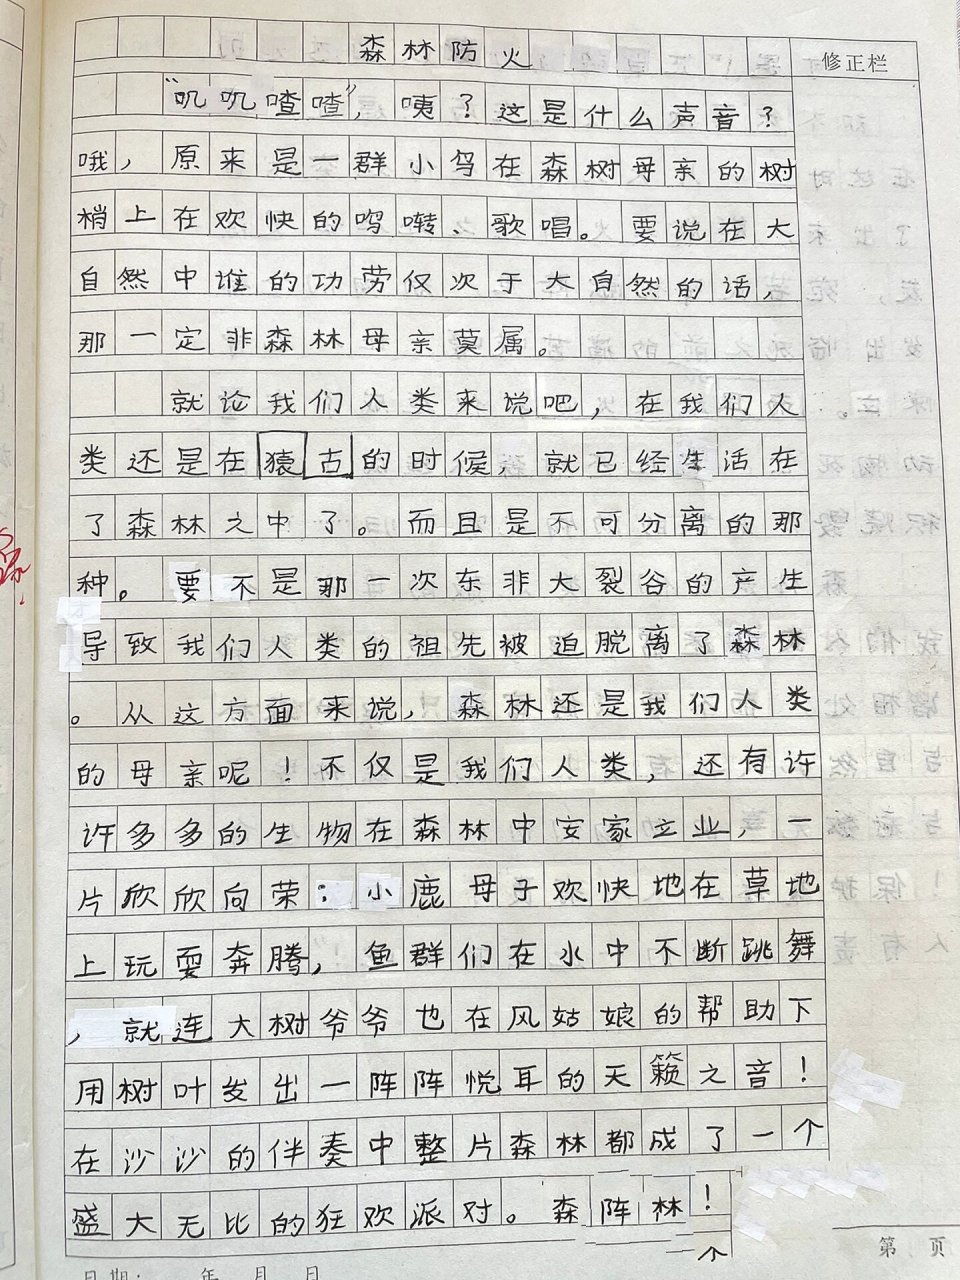 森林防火
修正栏
“叽叽喳喳”，咦？这是什么声音？
哦，原来是一群小鸟在森树母亲的树
梢上在欢快的鸣啭、歌唱。要说在大
自然中谁的功劳仅次于大自然的话，
那一定非森林母亲莫属。
就论我们人类来说吧，在我们人
类还是在猿古的时候，就已经生活在
了森林之中了。而且是不可分离的那
种。要不是那一次东非大裂谷的产生
导致我们人类的祖先被迫脱离了森林
。从这方面来说，森林还是我们人类
的母亲呢！不仅是我们人类，还有许
许多多的生物在森林中安家立业，一
片欣欣向荣：小鹿母子欢快地在草地
上玩耍奔腾，鱼群们在水中不断跳舞
，就连大树爷爷也在风姑娘的帮助下
用树叶发出一阵阵悦耳的天籁之音！
在沙沙的伴奏中整片森林都成了一个
盛大无比的狂欢派对。森阵林！
个
第 页
日期： 年 月 日